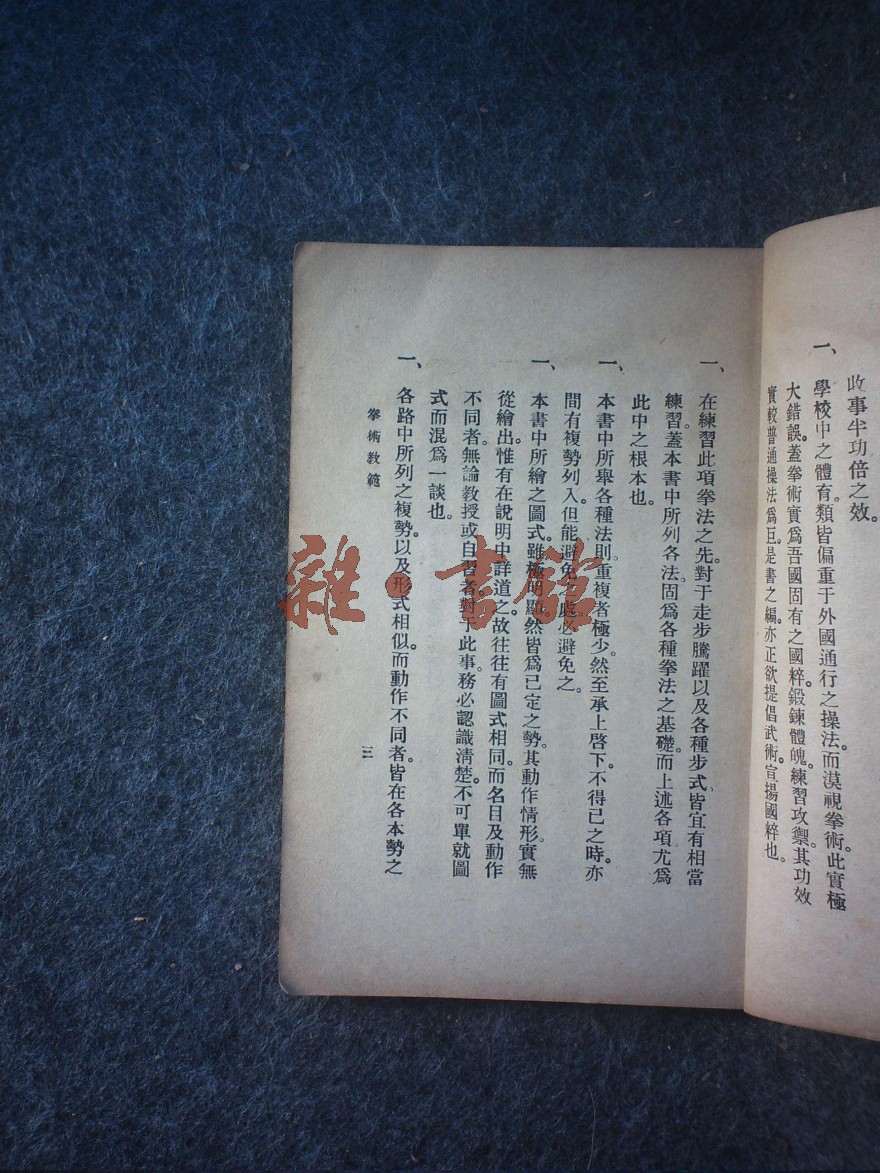 收事半功倍之效。
一、學校中之體育。類皆偏重于外國通行之操法。而漠視拳術。此實極
大錯誤。蓋拳術實爲吾國固有之國粹。鍛鍊體魄。練習攻禦。其功效
實較普通操法爲巨。是書之編。亦正欲提倡武術。宣揚國粹也。
一、在練習此項拳法之先。對于走步騰躍以及各種步式、皆宜有相當
練習。蓋本書中所列各法。固爲各種拳法之基礎。而上述各項尤爲
此中之根本也。
一、本書中所舉各種法則。重複者極少。然至承上啓下。不得已之時。亦
間有複勢列入。但能避免之處。必避免之。
一、本書中所繪之圖式。雖極明顯。然皆爲已定之勢。其動作情形。實無
從繪出。惟有在說明中詳道之。故往往有圖式相同。而名目及動作
不同者。無論教授或自習者。對于此事。務必認識清楚。不可單就圖
式而混爲一談也。
一、各路中所列之複勢。以及形式相似。而動作不同者。皆在各本勢之
拳術教範
三
雜·書館